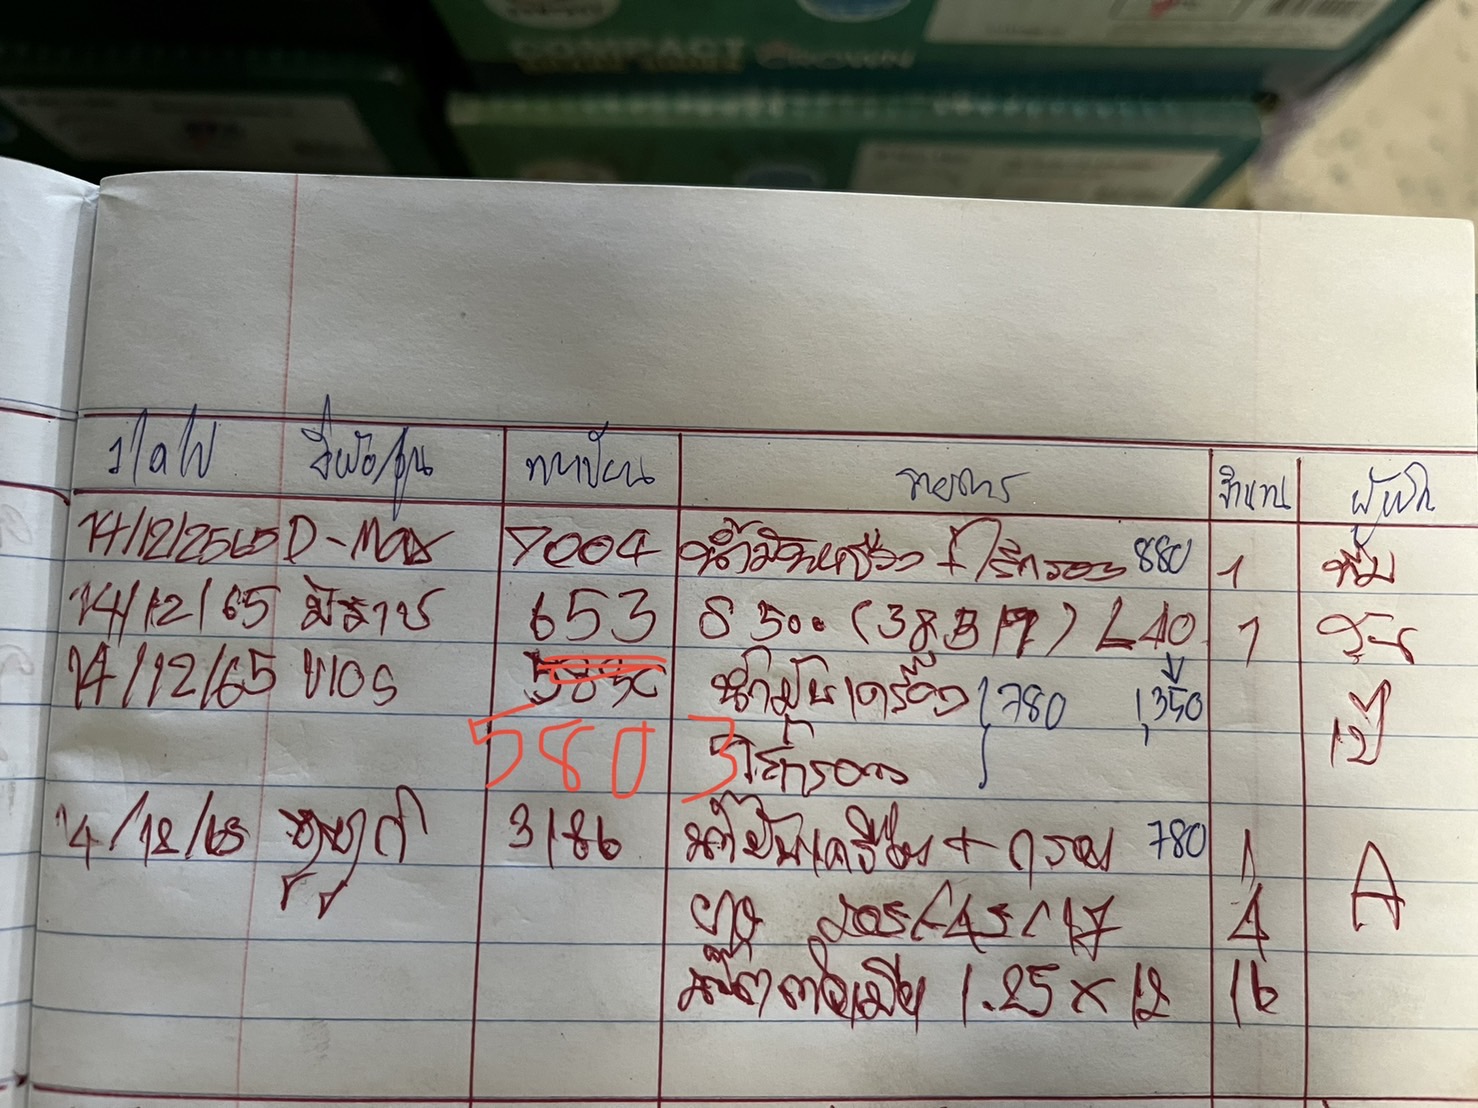 COMPACT CROWN
ว/ด/ป ยี่ห้อ/รุ่น ทะเบียน รายการ จำนวน ผู้เบิก
14/12/2565 D-Max 7004 น้ำมันเครื่อง + ไส้กรอง 880 1
14/12/65 653 8500 (38B19) L 40 1
14/12/65 VIOS น้ำมันเครื่อง 780 1,350
5803 ไส้กรอง
14/12/65 3186 น้ำมันเครื่อง + กรอง 780 1 A
ยาง 205/45/17 4
น๊อตตัวเมีย 1.25 x 12 16